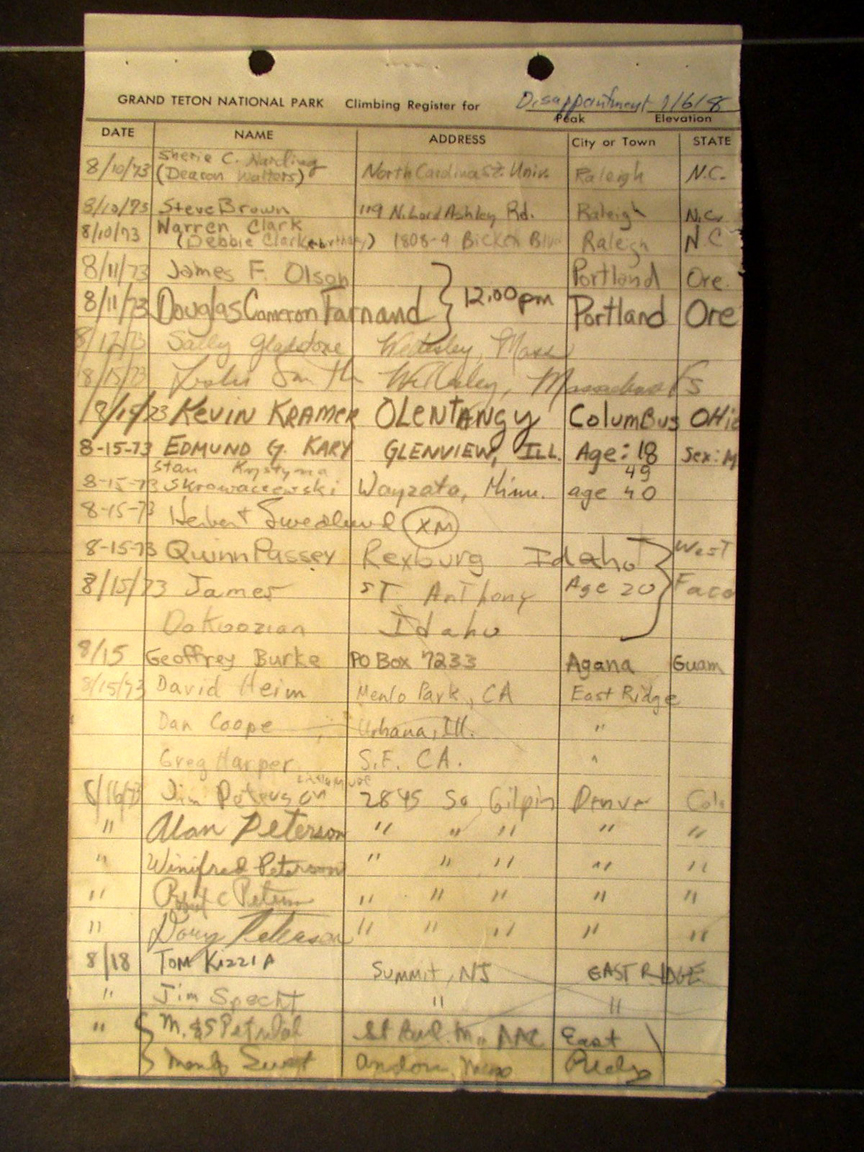 GRAND TETON NATIONAL PARK Climbing Register for Disappointment
Peak Elevation
DATE NAME ADDRESS City or Town STATE
8/10/73 Sherie C. Harding North Carolina St. Univ. Raleigh N.C.
(Deacon Watters)
8/10/73 Steve Brown 119 N. Lord Ashley Rd. Raleigh N.C.
8/10/73 Warren Clark
(Debbie Clark) 1808-4 Raleigh N.C
8/11/73 James F. Olson Portland Ore.
8/11/73 Douglas Cameron Farnand } 12:00pm Portland Ore
8/12/73 Sally Gladstone Wellesley, Mass
8/15/73 Leslie Smith Wellesley, Massachusetts
8/15/73 KEVIN KRAMER OLENTANGY ColumBus OHio
8-15-73 EDMUND G. KARY GLENVIEW, ILL. Age: 18 Sex: M
Stan Krystyna 49
8-15-73 Skrowaczewski Wayzata, Minn. age 40
8-15-73 Herbert Swedlund XM
8-15-73 Quinn Passey Rexburg Idaho } West
8/15/73 James ST AnThony Age 20 Face
Dokoozian Idaho
8/15 Geoffrey Burke PO Box 7233 Agana Guam
8/15/73 David Heim Menlo Park, CA East Ridge
Dan Coope Urbana, Ill. "
Greg Harper S.F. CA. "
8/16/73 Jim Peterson 2845 So Gilpin Denver Colo
" Alan Peterson " " " " "
" Winifred Peterson " " " " "
" C Peterson " " " " "
" Doug Peterson " " " " "
8/18 TOM KIZZIA SUMMIT, NJ EAST RIDGE
" Jim Specht " "
" { M. & S East
Ridge